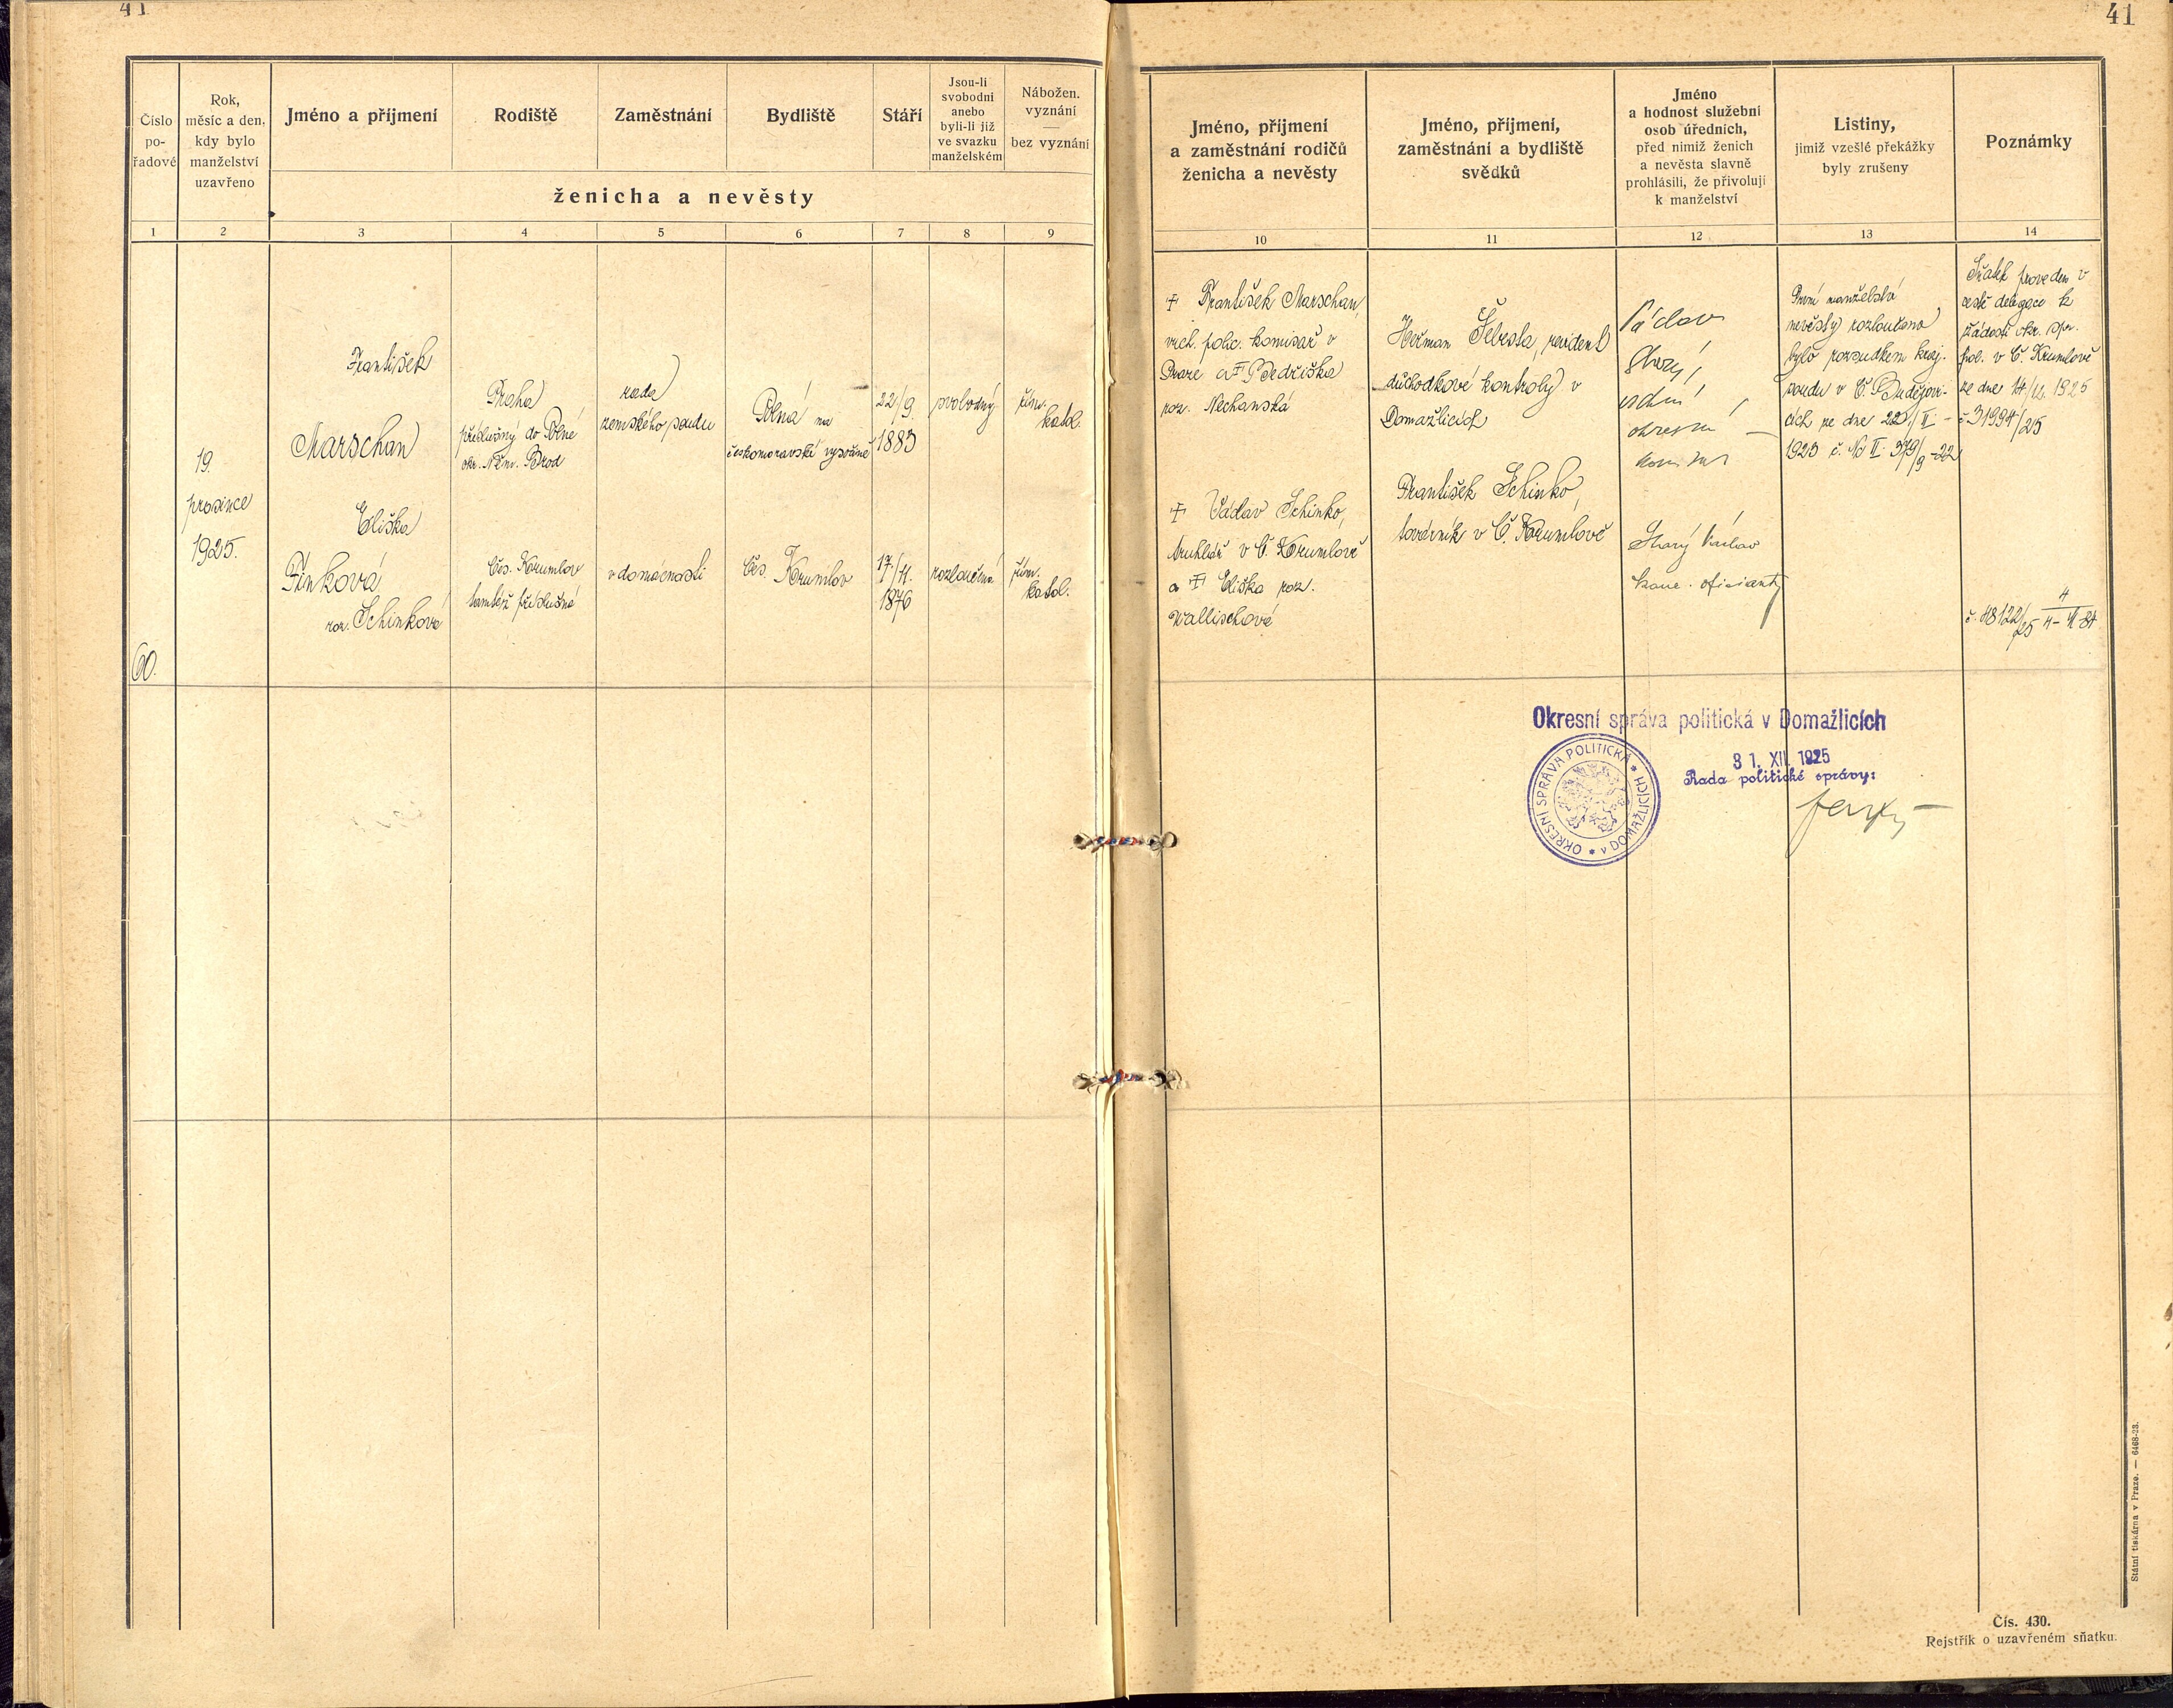 41
41
Číslo
po-
řadové
Rok,
měsíc a den,
kdy bylo
manželství
uzavřeno
Jméno a příjmení
Rodiště
Zaměstnání
Bydliště
Stáří
Jsou-li
svobodni
anebo
byli-li již
ve svazku
manželském
Nábožen.
vyznání
—
bez vyznání
ženicha a nevěsty
1 2 3 4 5 6 7 8 9
60.
19.
prosince
1925.
František
Marschan
Praha
příslušný do Polné
okr. Něm. Brod
rada
zemského soudu
Polná na
českomoravské vysočině
22/9.
1883
svobodný
řím.
katol.
Eliška
Finková
roz. Schinkové
Čes. Krumlov
tamtéž příslušná
v domácnosti
Čes. Krumlov
17/4.
1876
rozloučená
řím.
katol.
Jméno, příjmení
a zaměstnání rodičů
ženicha a nevěsty
Jméno, příjmení,
zaměstnání a bydliště
svědků
Jméno
a hodnost služební
osob úředních,
před nimiž ženich
a nevěsta slavně
prohlásili, že přivolují
k manželství
Listiny,
jimiž vzešlé překážky
byly zrušeny
Poznámky
10 11 12 13 14
† František Marschan,
vrch. polic. komisař v
Praze a † Bedřiška
roz. Nechanská
† Václav Schinko,
truhlář v Č. Krumlově
a † Eliška roz.
Wallischové
Heřman Šebesta, revident
důchodkové kontroly v
Domažlicích
František Schinko,
továrník v Č. Krumlově
Václav
okresní
komisař
Starý Václav
kanc. oficiant
První manželství
nevěsty rozloučeno
bylo rozsudkem kraj.
soudu v Č. Budějovi-
cích ze dne 22./II. –
1923 č. Nc II 379/9 -22
Sňatek proveden v
cestě delegace k
žádosti okr. spr.
pol. v Č. Krumlově
ze dne 14/12. 1925
č. 31994/25
č. 48122/25
Okresní správa politická v Domažlicích
31. XII. 1925
Rada politické správy:
OKRESNÍ SPRÁVA POLITICKÁ * V DOMAŽLICÍCH *
Státní tiskárna v Praze. — 6468-23.
Čís. 430.
Rejstřík o uzavřeném sňatku.